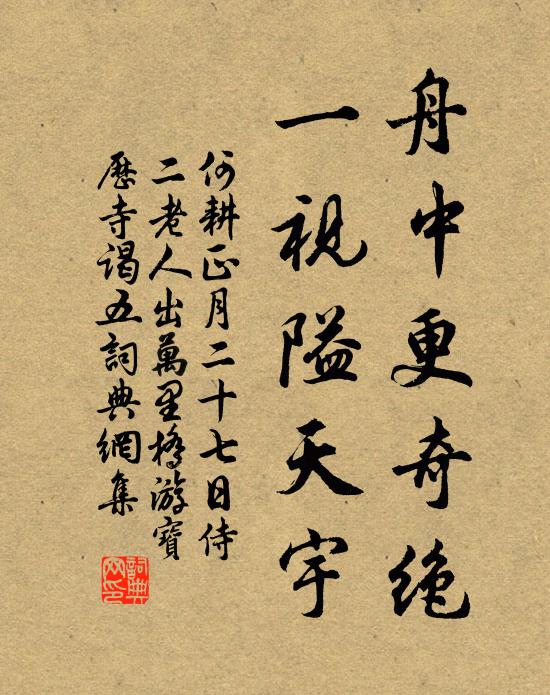 舟中更奇绝
一視隘天宇
何耕正月二十七日侍
二老人出萬里橋游寶
歷寺謁五詞典網集
詞典網印